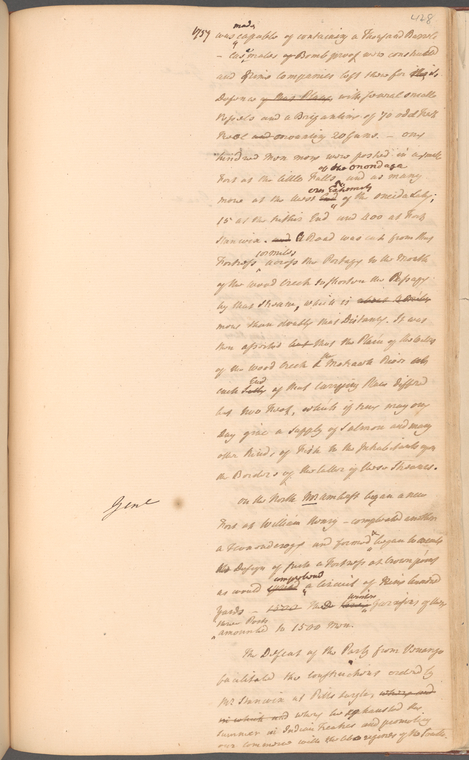 428
1757 was capable of containing a Thousand Barrels
made
– Casmates of Bomb proof were constructed
and Nine Companies left there for
Defence with several smaller
Vessels and a Brigantine of 70 odd Feet
Keel and mounting 20 Guns. – One
hundred Men more were posted in a small
of the Onondaga
Fort at the little Falls, and as many
Extremity
more at the West End of the Oneida Lake;
15 at the End and 400 at Fort
Stanwix. and A Road was cut from this
10 miles
Fortress across the Portage to the Mouth
of the Wood Creek to shorten the Passage
by that Stream, which is about
more than double that Distance. It was
then asserted but that the Plain of the Waters
of the Wood Creek & Mohawk River
End
each of that Carrying Place differed
but two Feet, which if true may one
Day give a supply of Salmon and many
other Kinds of Fish to the Inhabitants upon
the Borders of the latter of these Streams.
On the North Mr Amherst began a new
Gene
Fort at William Henry – compleated another
a Ticonderoga and formed began
Design of such a Fortress at Crown point
comprehend
as would a Circuit of Nine hundred
winter
Yards – 1500 The Garrisons of these
three Posts
amounted to 1500 Men.
The Defeat of the Party from Venango
facilitated the constructions ordered by
Mr Stanwix at Pittsburgh, where and
in which and where he exhausted the
Summer in Indian Treaties and promoting
our commerce with the of the South,